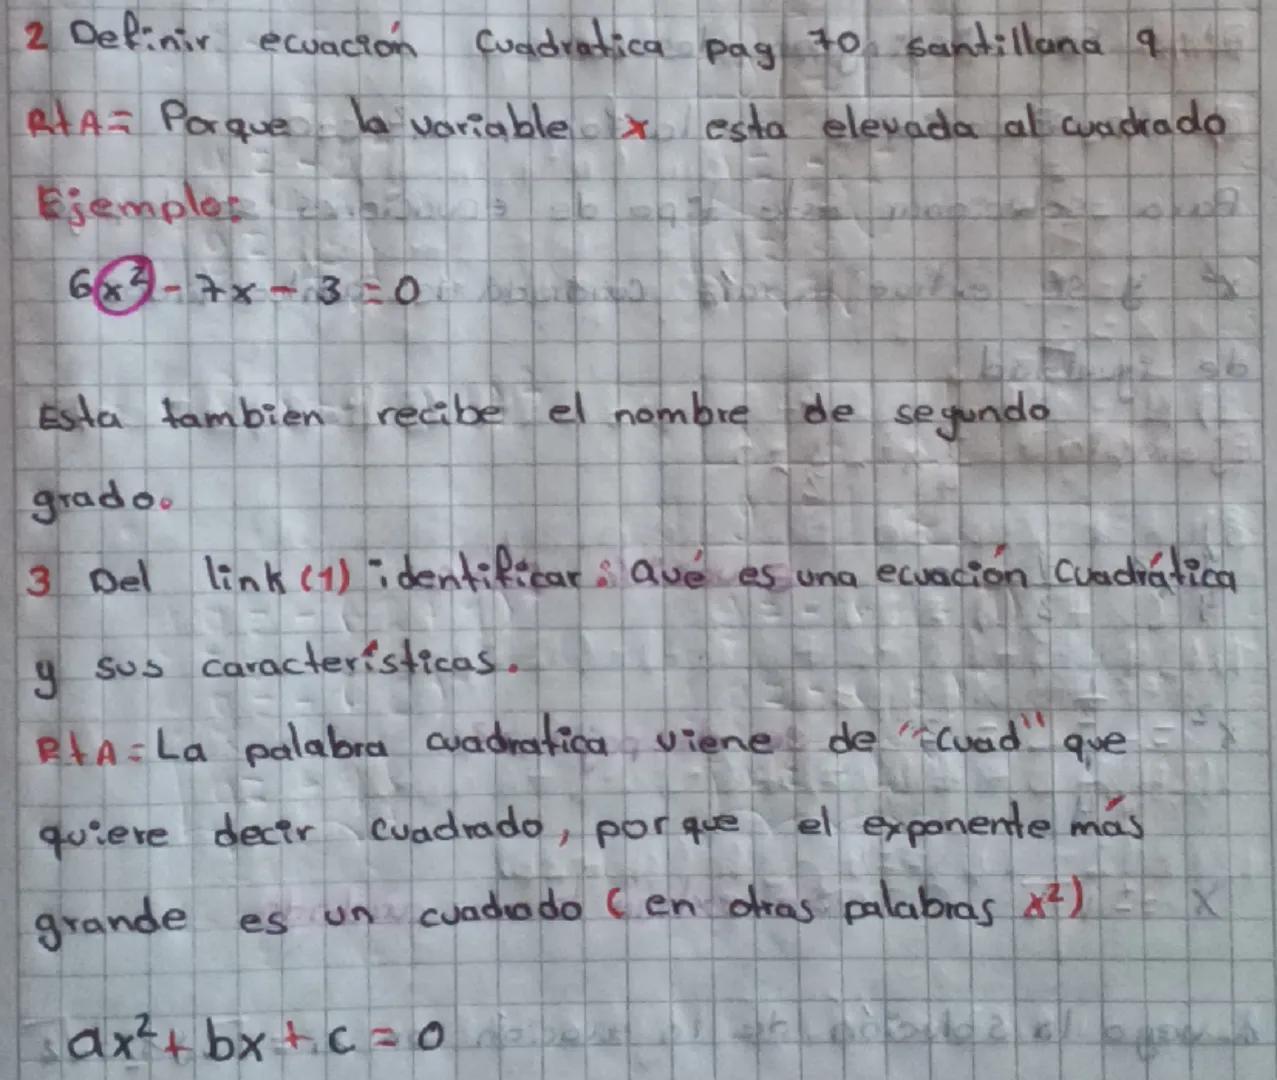 2 Definir ecuación Cuadratica pag 70 santillana 9
RtA= Porque la variable x esta elevada al cuadrado
Ejemplo:
6x² - 7x - 3 = 0
Esta tambien recibe el nombre de segundo
grado.
3 Del link (1) identificar: Qué es una ecuación Cuadrática
y sus características.
RtA= La palabra cuadratica viene de "cuad" que
quiere decir cuadrado, porque el exponente más
grande es un cuadrado (en otras palabras x²)
ax² + bx + c = 0